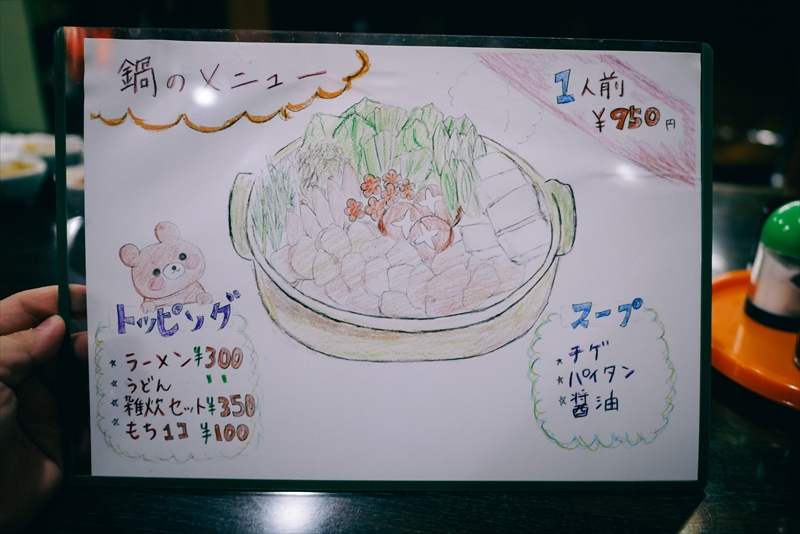 鍋のメニュー
1人前
¥950円
トッピング
★ラーメン¥300
★うどん 〃
★雑炊セット¥350
★もち1コ ¥100
スープ
☆チゲ
☆パイタン
☆醤油